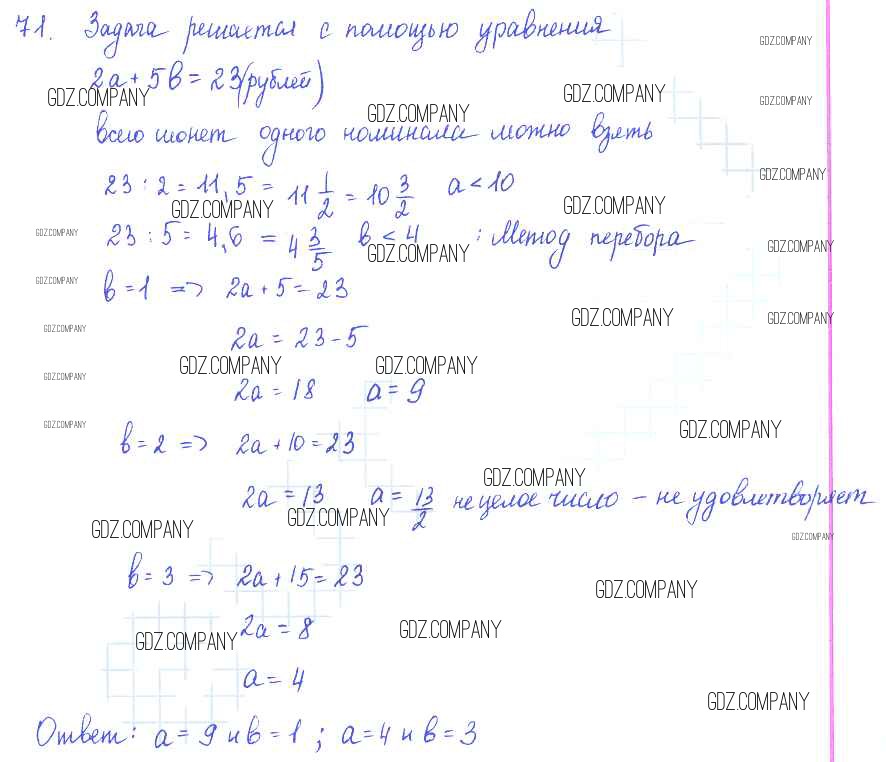 71. Задача решается с помощью уравнения
GDZ.COMPANY
2a + 5b = 23 (рублей)
GDZ.COMPANY GDZ.COMPANY GDZ.COMPANY GDZ.COMPANY
всего монет одного номинала можно взять
GDZ.COMPANY
23 : 2 = 11,5 = 11 1/2 = 10 3/2 a < 10
GDZ.COMPANY GDZ.COMPANY
GDZ.COMPANY 23 : 5 = 4,6 = 4 3/5 b < 4 : Метод перебора
GDZ.COMPANY GDZ.COMPANY
GDZ.COMPANY b = 1 => 2a + 5 = 23
GDZ.COMPANY GDZ.COMPANY
GDZ.COMPANY 2a = 23 - 5
GDZ.COMPANY GDZ.COMPANY
GDZ.COMPANY 2a = 18 a = 9
GDZ.COMPANY GDZ.COMPANY
b = 2 => 2a + 10 = 23
GDZ.COMPANY
2a = 13 a = 13/2 не целое число - не удовлетворяет
GDZ.COMPANY GDZ.COMPANY GDZ.COMPANY
b = 3 => 2a + 15 = 23
GDZ.COMPANY
2a = 8
GDZ.COMPANY GDZ.COMPANY
a = 4
GDZ.COMPANY
Ответ: a = 9 и b = 1 ; a = 4 и b = 3